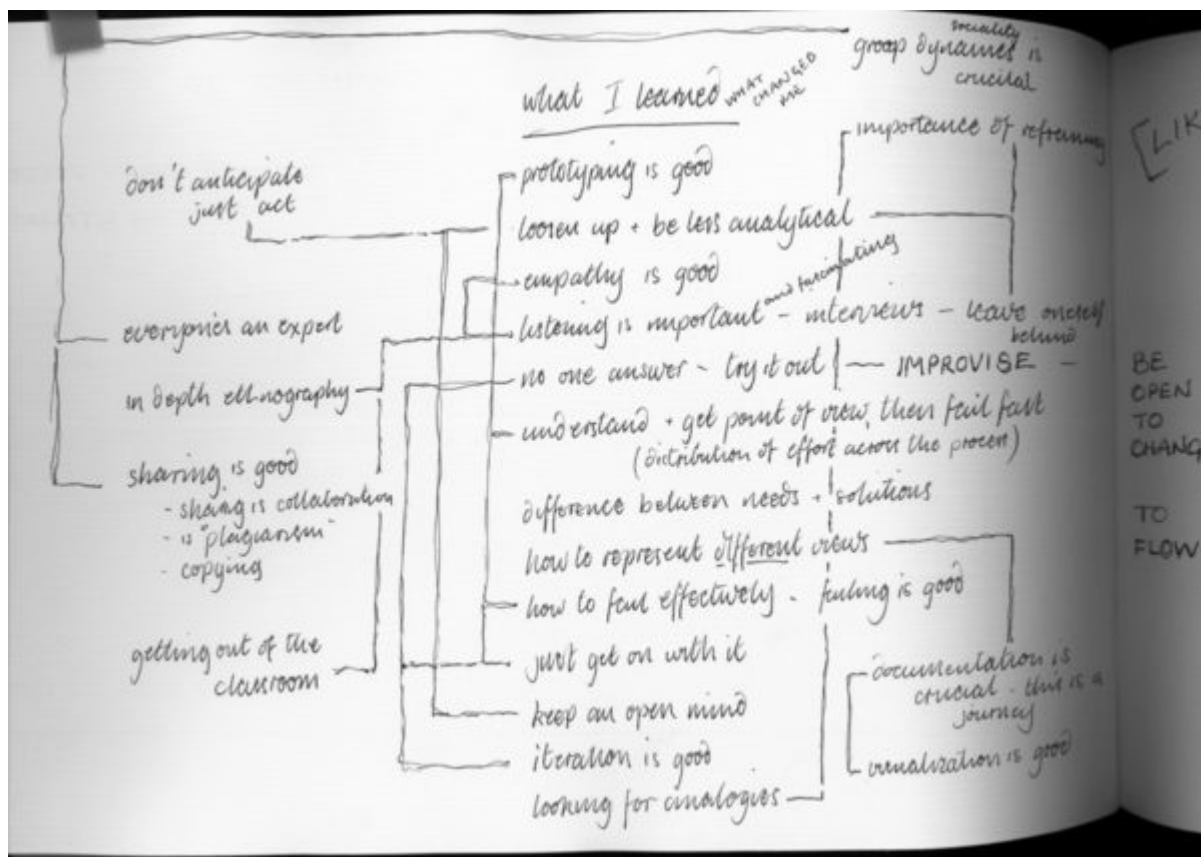 sociality
group dynamics is
crucial
what I learned
WHAT
CHANGED
ME
don't anticipate
just act
everyone's an expert
in depth ethnography
sharing is good
- sharing is collaboration
- is "plagiarism"
- copying
getting out of the
classroom
prototyping is good
loosen up + be less analytical
empathy is good
and fascinating
listening is important - interviews - leave oneself
behind
no one answer - try it out - IMPROVISE -
understand + get point of view, then fail fast
(distribution of effort across the process)
difference between needs + solutions
how to represent different views
how to fail effectively - failing is good
just get on with it
keep an open mind
iteration is good
looking for analogies
importance of reframing
documentation is
crucial - this is a
journey
visualization is good
[LIK
BE
OPEN
TO
CHANG
TO
FLOW